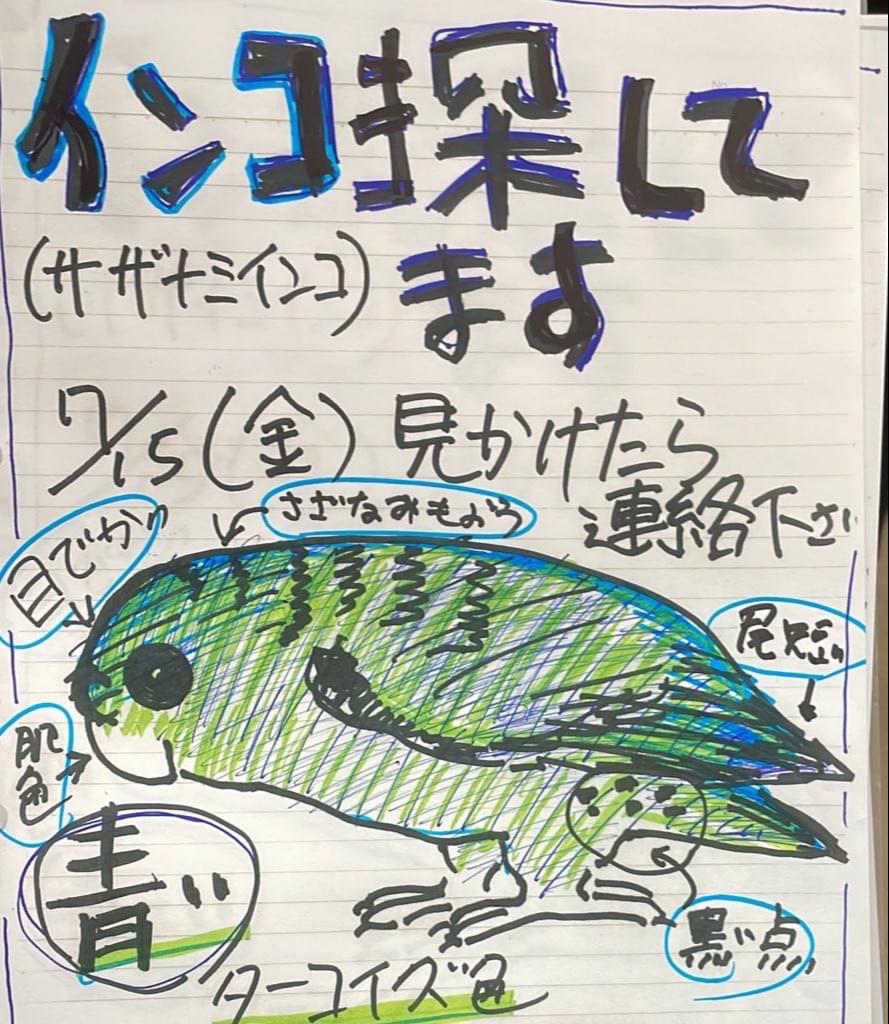 インコ探して
(サザナミインコ)ます
7/15(金)見かけたら
連絡下さい
さざなみもよう
目でかい
尾短い
肌色
青い
黒い点
ターコイズ色